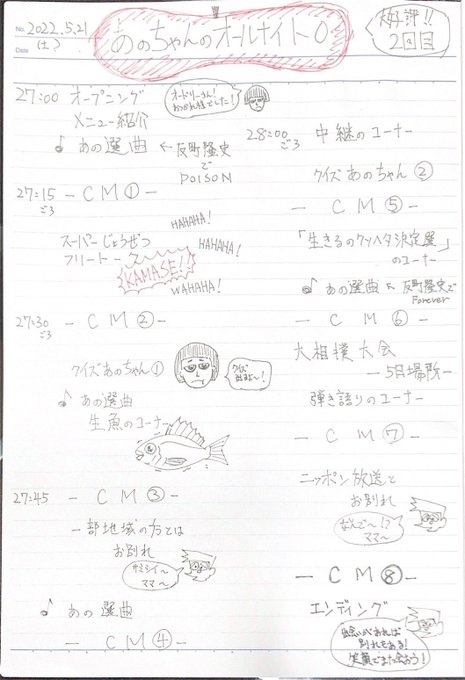 No. 2022.5.21
Date (土)
あのちゃんのオールナイト0
好評!!
2回目
27:00 オープニング
メニュー紹介
オードリーさん!
おつかれ様でした!
♪ あの選曲 ← 反町隆史
で
POISON
27:15 - CM① -
ごろ
スーパーじょうぜつ
フリートーク〜
HAHAHA!
HAHAHA!
KAMASE!
WAHAHA!
27:30 - CM② -
ごろ
クイズあのちゃん①
クイズ
♪ あの選曲
生魚のコーナー
27:45 - CM③ -
一部地域の方とは
お別れ
サミシイ〜
ママ〜
♪ あの選曲
- CM④ -
28:00 中継のコーナー
ごろ
クイズあのちゃん②
- CM⑤ -
「生きるのワハタ決定選」
のコーナー
♪ あの選曲 ← 反町隆史で
Forever
- CM⑥ -
大相撲大会
-5月場所-
弾き語りのコーナー
- CM⑦ -
ニッポン放送と
お別れ
なんで〜!?
ママ〜
- CM⑧ -
エンディング
出会いがあれば
別れもある!
笑顔でまた会おう!